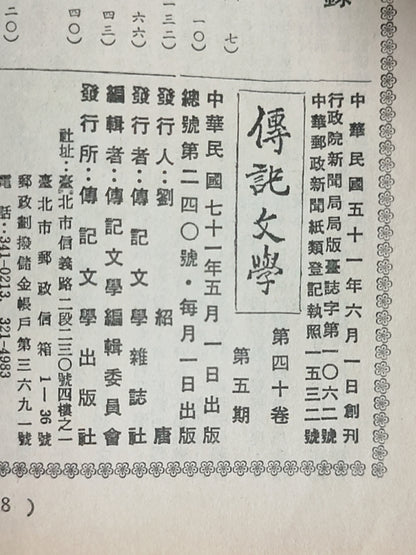 錄
七)
一〇)
一三二)
六六)
四三)
四〇)
二〇)
中華民國五十一年六月一日創刊
行政院新聞局局版臺誌字第一〇六二號
中華郵政新聞紙類登記執照一五三二號
傳記文學
第四十卷
第五期
中華民國七十一年五月一日出版
總號第二四〇號・每月一日出版
發行人:劉紹唐
發行者:傳記文學雜誌社
編輯者:傳記文學編輯委員會
發行所:傳記文學出版社
社址:臺北市信義路二段二三〇號四樓之一
臺北市郵政信箱1—36號
郵政劃撥儲金帳戶第三六九一號
電話:341-0213 321-4983
8 )